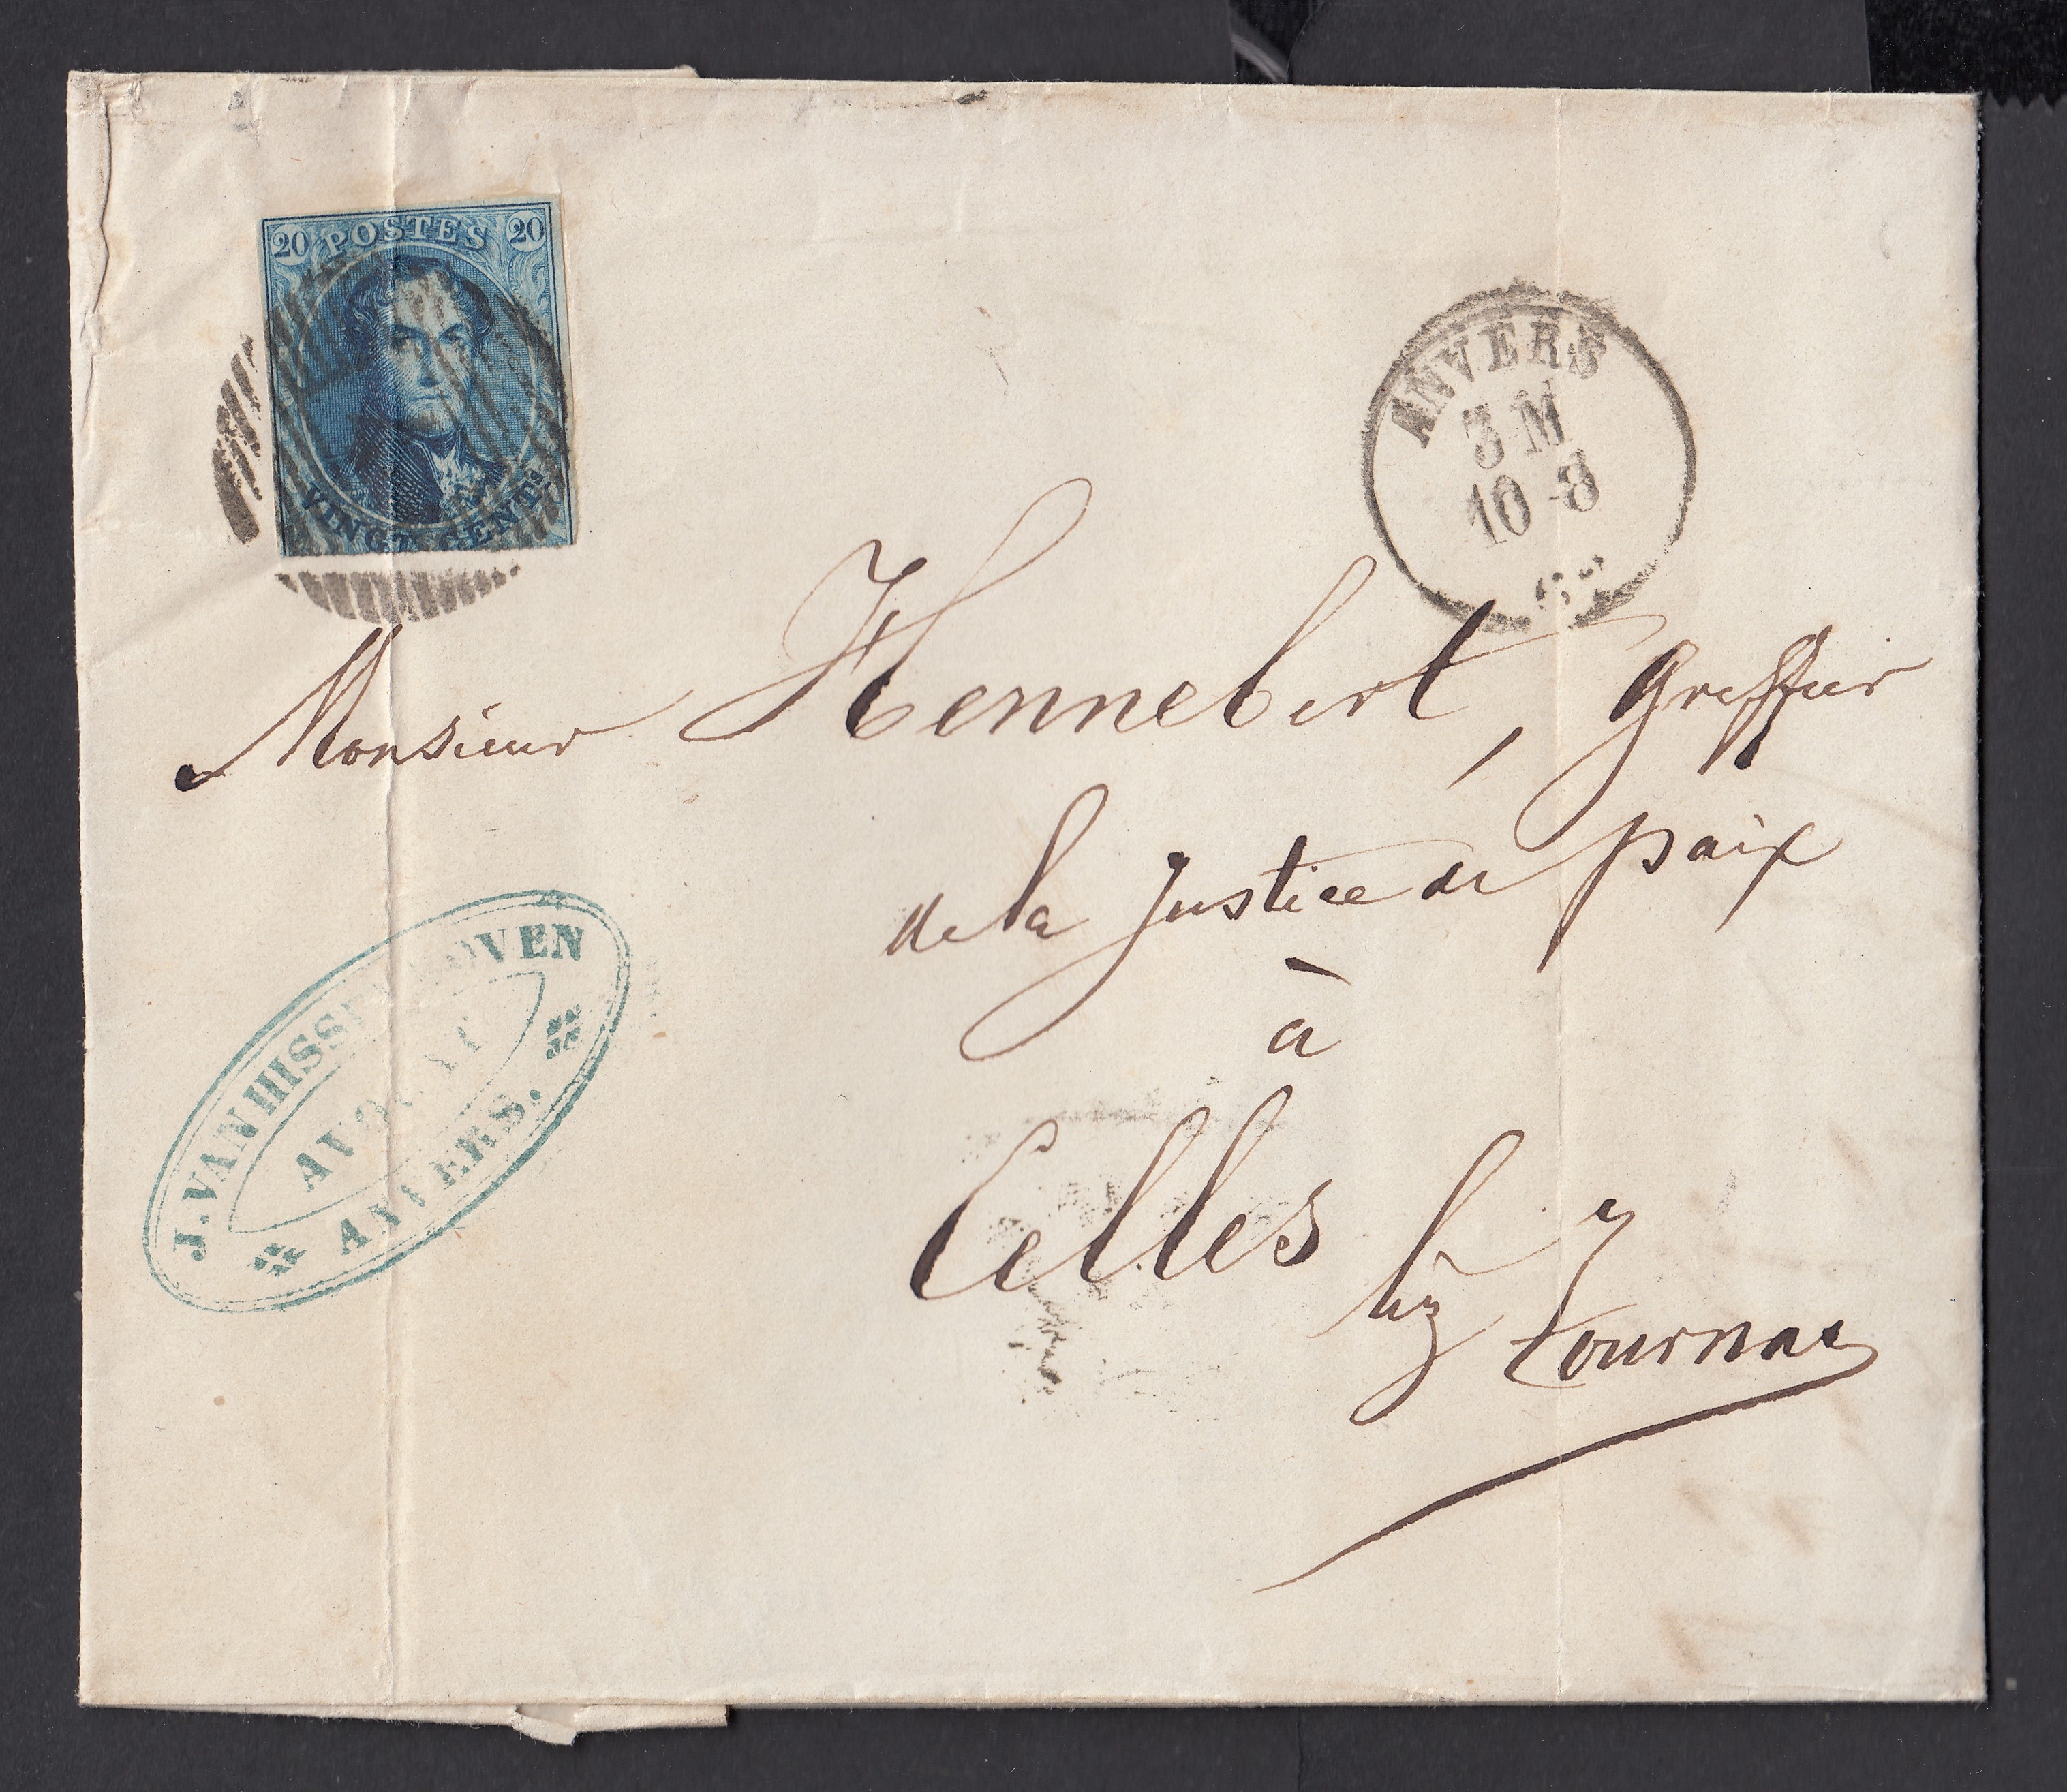 20 POSTES 20
VINGT CENTS
ANVERS
3 M
10 8
Monsieur Hennebert, Greffier
de la Justice de paix
à
Celles lez Tournai
J. VAN HISSENHOVEN
AVOCAT
ANVERS.